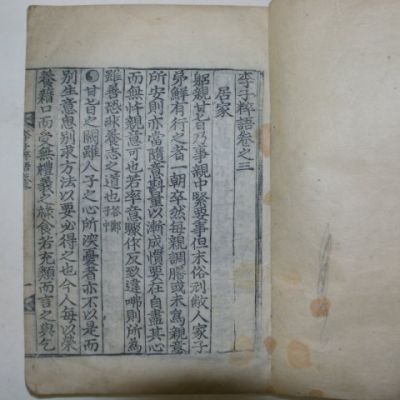 李子粹語卷之三
居家
躬親甘旨乃事親中緊要事但末俗刓敝人家子
弟鮮有行之者一朝卒然每親調膳或未爲親意
所安則亦當隨意斟量以漸成慣要在自盡其心
而無忤親意可也若率意驟作反致違咈則所爲
雖善恐非養志之道也答鄭子中
甘旨之闕雖人子之心所深憂者亦不以是而
別生意思別求方法以要必得之也今人每以榮
養藉口而受無禮義之祿食若充類而言之與乞